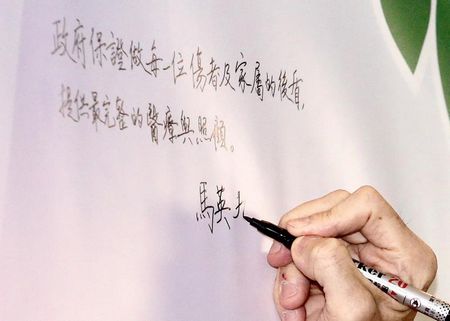 政府保證做每一位傷者及家屬的後盾，
提供最完整的醫療與照顧。
馬英九